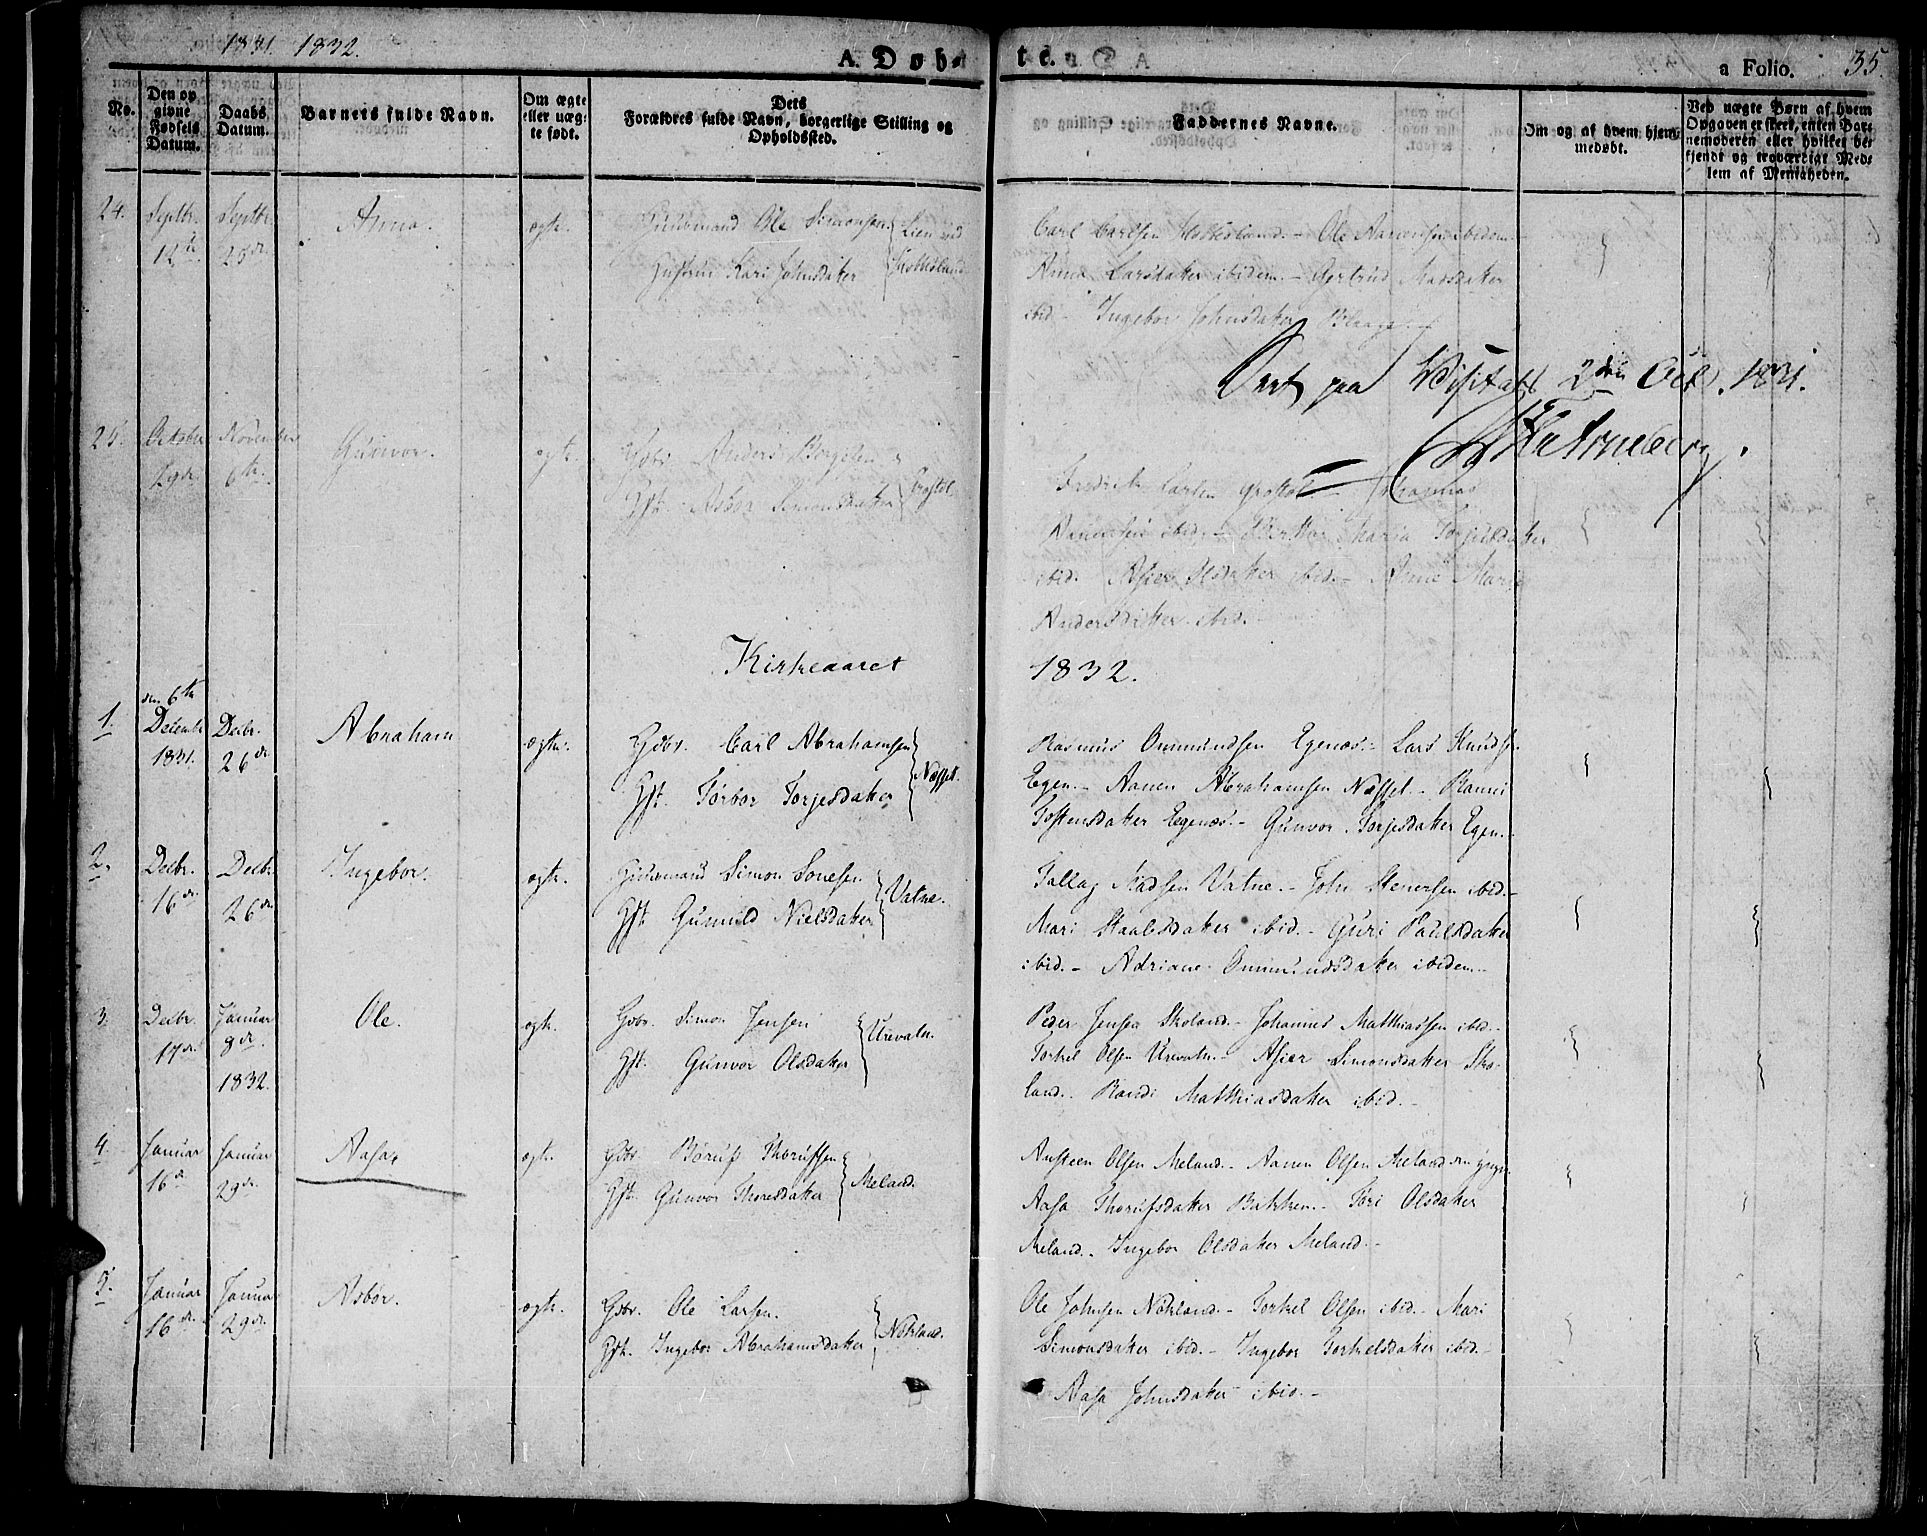 1831. 1832.
A. Døb-
te.
a Folio. 35.
No.
Den op
givne
Fødsels
Datum.
Daabs
Datum.
Barnets fulde Navn.
Om ægte
eller uæg-
te født.
Dets
Forældres fulde Navn, borgerlige Stilling og
Opholdssted.
Faddernes Navne.
Om og af hvem hjem-
medøbt.
Ved uægte Børn af hvem
Opgaven er skeet, enten Bar-
nemoderen eller hvilket be-
kjendt og troværdigt Med-
lem af Menigheden.
24. Septbr. Septbr. Anna. ægte. Huusmand Ole Simonsen Lien ved
12te 25de Hustru Kari Johnsdatter
Carl Carlsen ibidem
Anna Larsdatter ibidem. - Gertrud Madsdatter
ibid - Ingebor Johnsdatter
Seet paa Visitats 2den Oct. 1831.
25. October November Gunvor. ægte. Gbr. Anders Børgesen
29de 6te. Hst. Asbor Simonsdatter
Fredrik Larsen
ibid. - Maria Torjusdatter
ibid. Asier Olsdatter ibid. - Anne Marie
Andersdatter ibid. -
Kirkeaaret
1832.
1. den 6te Decembr 1831. Decbr. 26de Abraham ægte. Gdbr. Carl Abrahamsen
Hst. Torbor Torjesdatter
Rasmus Ommundsen Egenæs. - Lars Knuds.
Egen. - Aanen Abrahamsen - Ranni
Tostensdatter Egenæs. - Gunvor Torjesdatter Egen. -
2. Decbr. 16de Decbr. 26de Ingebor. ægte. Huusmand Simon Sonesen Vatne.
Hst. Gunnild Nielsdatter
Tallag Madsen Vatne. - John Stenersen ibid -
Mari Staalesdatter ibid. - Guri Paulsdatter
ibid. - Adriane Ommundsdatter ibidem. -
3. Decbr. 17de Januar 8de. 1832. Ole. ægte. Gdbr. Simon Jensen Urevatn.
Hst. Gunvor Olsdatter
Peder Jensen Skoland. - Johannes Matthiassen ibid. -
Torkel Olsen Urevatn. - Asier Simonsdatter Sko-
land. Randi Matthiasdatter ibid. -
4. Januar 16de Januar 29de. Aasa. ægte. Gdbr. Børuf Thorufsen Meland.
Hst. Gunvor Thoresdatter
Austeen Olsen Meland. - Aanen Olsen Meland den yngre
Aasa Thorufsdatter Bakken. - Tori Olsdatter
Meland. - Ingebor Olsdatter Meland. -
5. Januar 16de. Januar 29de. Asbor. ægte. Gdbr. Ole Larsen. Nokland.
Hst. Ingebor Abrahamsdatter
Ole Johnsen Nokland. - Torkel Olsen ibid. - Mari
Simonsdatter ibid. - Ingebor Torkelsdatter ibid. -
Aasa Johnsdatter ibid. -